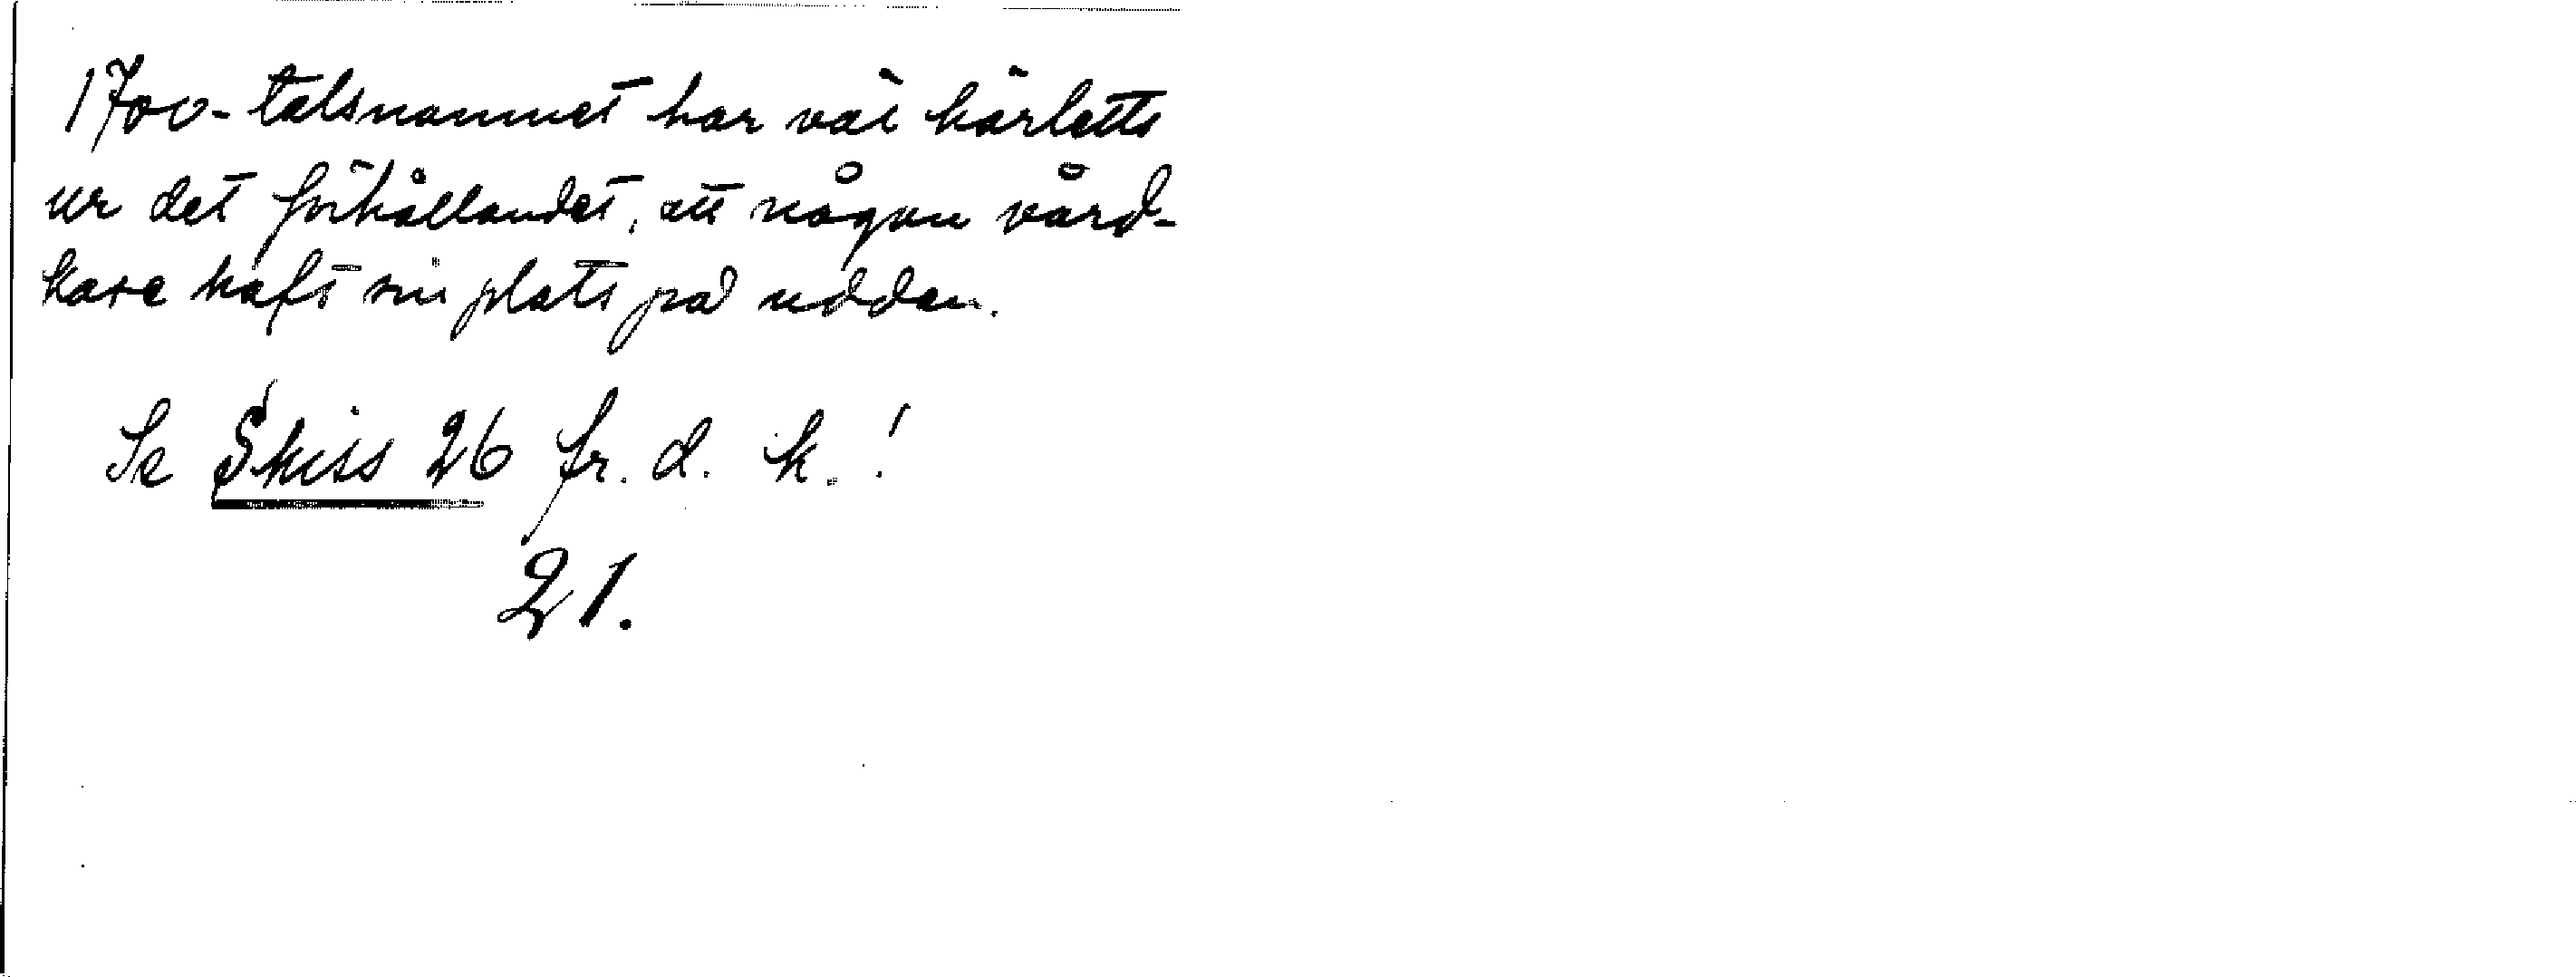 1700-talsnamnet har väl härletts
ur det förhållandet, att någon vård-
kase haft sin plats på udden.
Se Skiss 26 fr. d. k.!
21.